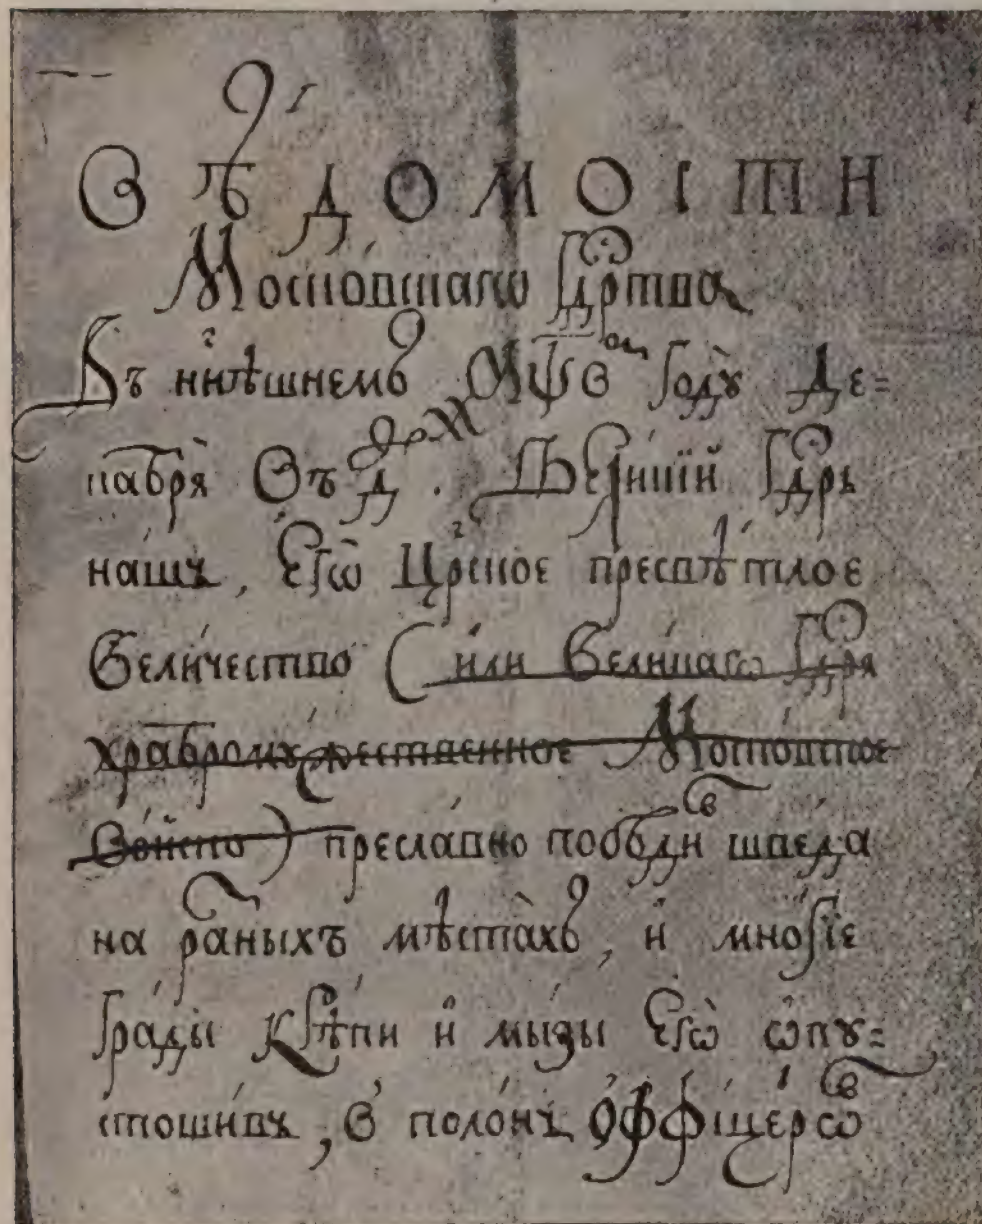 ВѢДОМОСТИ
Московскагѡ Гдⷭ҇рства
Въ нн҃ѣшнемъ ҂аѱв году де=
кабря въ д҃. Великїй Гдⷭ҇рь
нашъ, Егѡ Црⷭ҇кое пресвѣтлое
Величество (или Великагѡ Гдⷭ҇ря
храбромужественное Московское
войско) преславно побѣдивъ шведа
на разныхъ мѣстахъ, и многїе
грады крѣпки и мызы Егѡ ѡпу=
стошивъ, в полонъ Ѻффіцерѡвъ